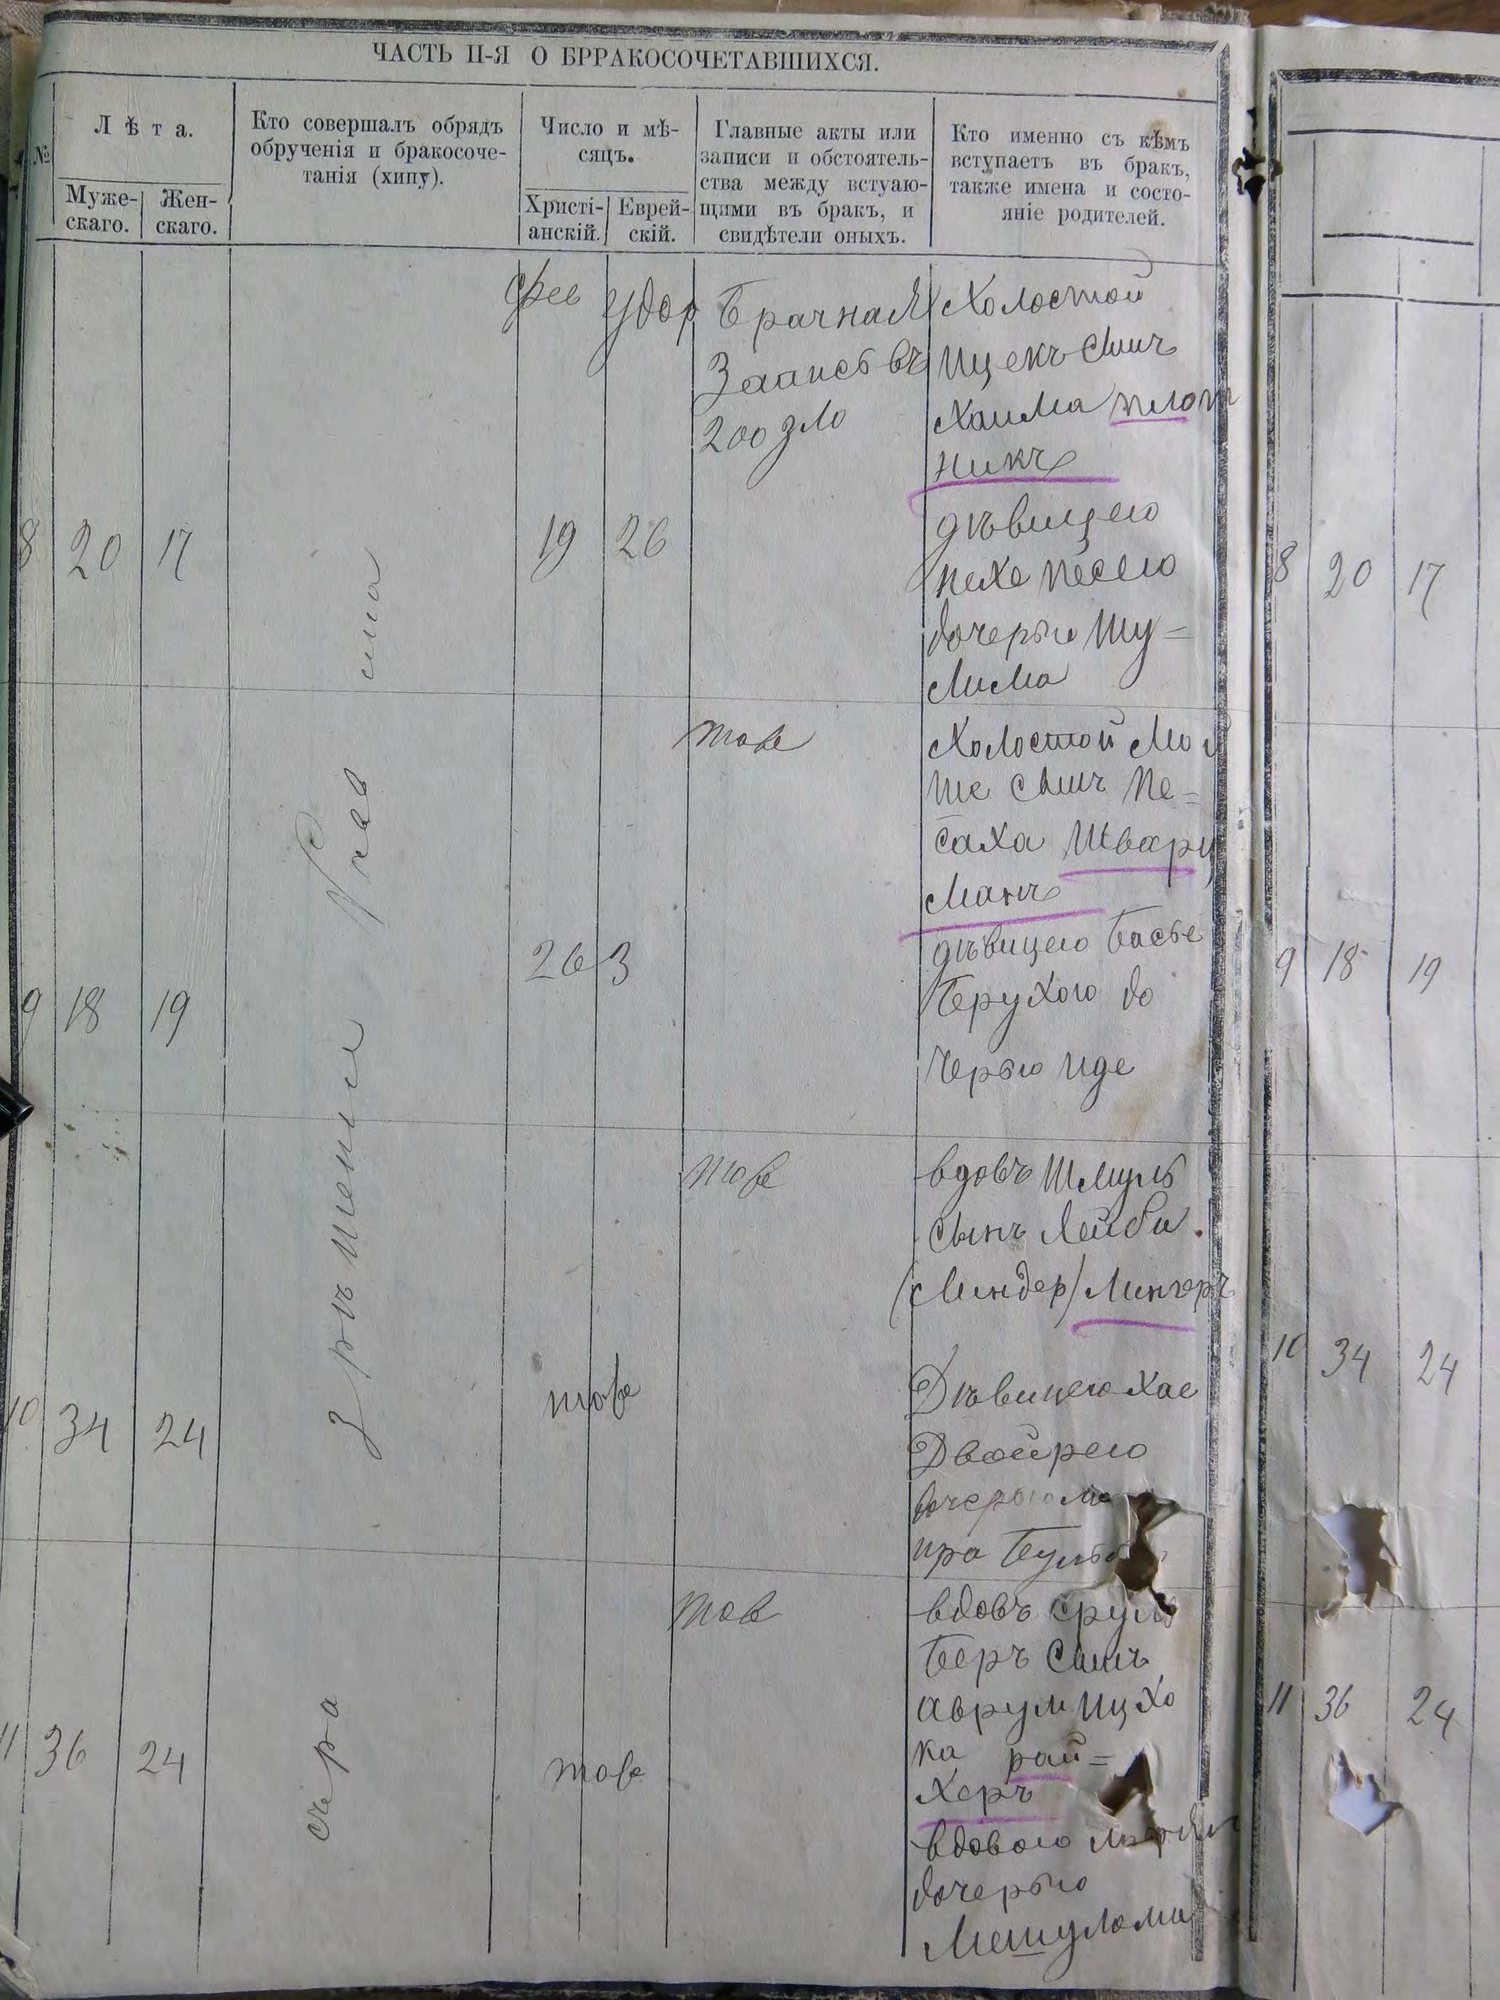 ЧАСТЬ II-Я О БРРАКОСОЧЕТАВШИХСЯ.
№
Лѣта.
Муже-
скаго.
Жен-
скаго.
Кто совершалъ обрядъ
обрученія и бракосоче-
танія (хипу).
Число и мѣ-
сяцъ.
Христі-
анскій.
Еврей-
скій.
Главные акты или
записи и обстоятель-
ства между встуаю-
щими въ бракъ, и
свидѣтели оныхъ.
Кто именно съ кѣмъ
вступаетъ въ бракъ,
также имена и состо-
яніе родителей.
8
20
17
19
26
Фев
Удор
Брачная
200 зло
Холостой
Ицекъ сынъ
Хаима плот
никъ
дѣвицею
Песею
дочерью Шу=
лима
9
18
19
26
3
тоже
Холостой Мой
ше сынъ Пе=
саха Шварц
манъ
дѣвицею Басъе
Брухою до
черью Иде
10
34
24
тоже
тоже
вдовъ Шмуль
сынъ Лейби.
(Линдер) Лингеръ
Дѣвицею Хае
Двойрею
дочерью
11
36
24
тоже
тож
вдовъ Сруль
Беръ сынъ
Аврум Ицхо
ка рай=
херъ
вдовою
дочерью
Мешулома
8 20 17
9 18 19
10 34 24
11 36 24